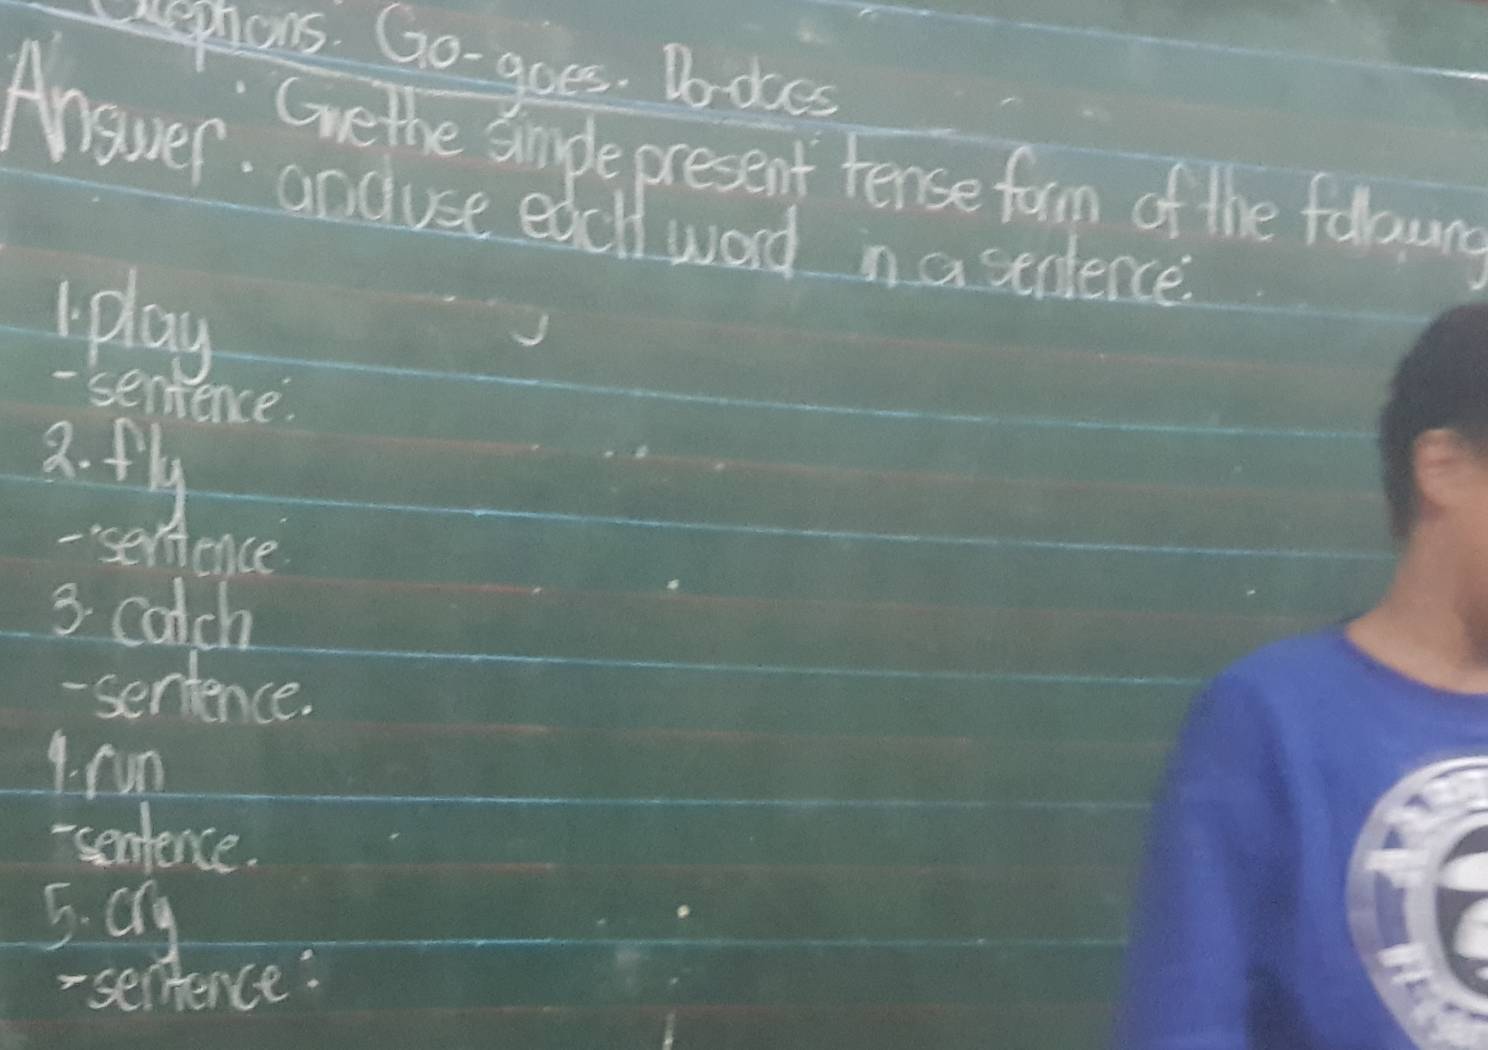 Go-goes. Do-does
Answer. Give the simple present tense form of the following
and use each word in a sentence.
1. play
- sentence:
2. fly
- sentence
3. catch
- sentence.
4. run
- sentence.
5. cry
- sentence: